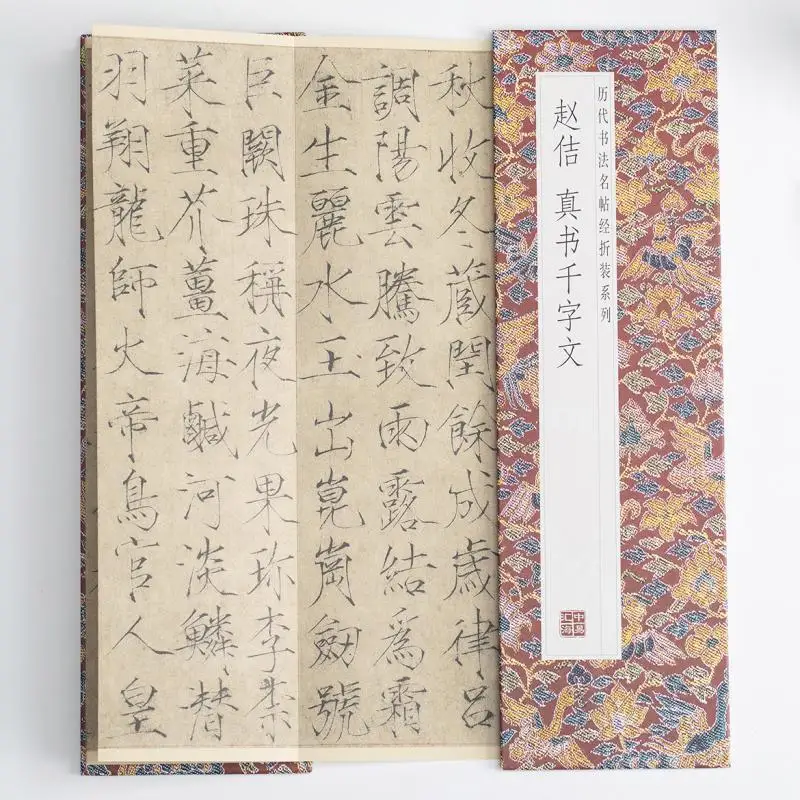 历代书法名帖经折装系列
赵佶 真书千字文
中易汇海
秋收冬蔵閏餘成歲律呂
調陽雲騰致雨露結爲霜
金生麗水玉出崑崗劔號
巨闕珠稱夜光果珎李柰
菜重芥薑海鹹河淡鱗潜
羽翔龍師火帝鳥官人皇